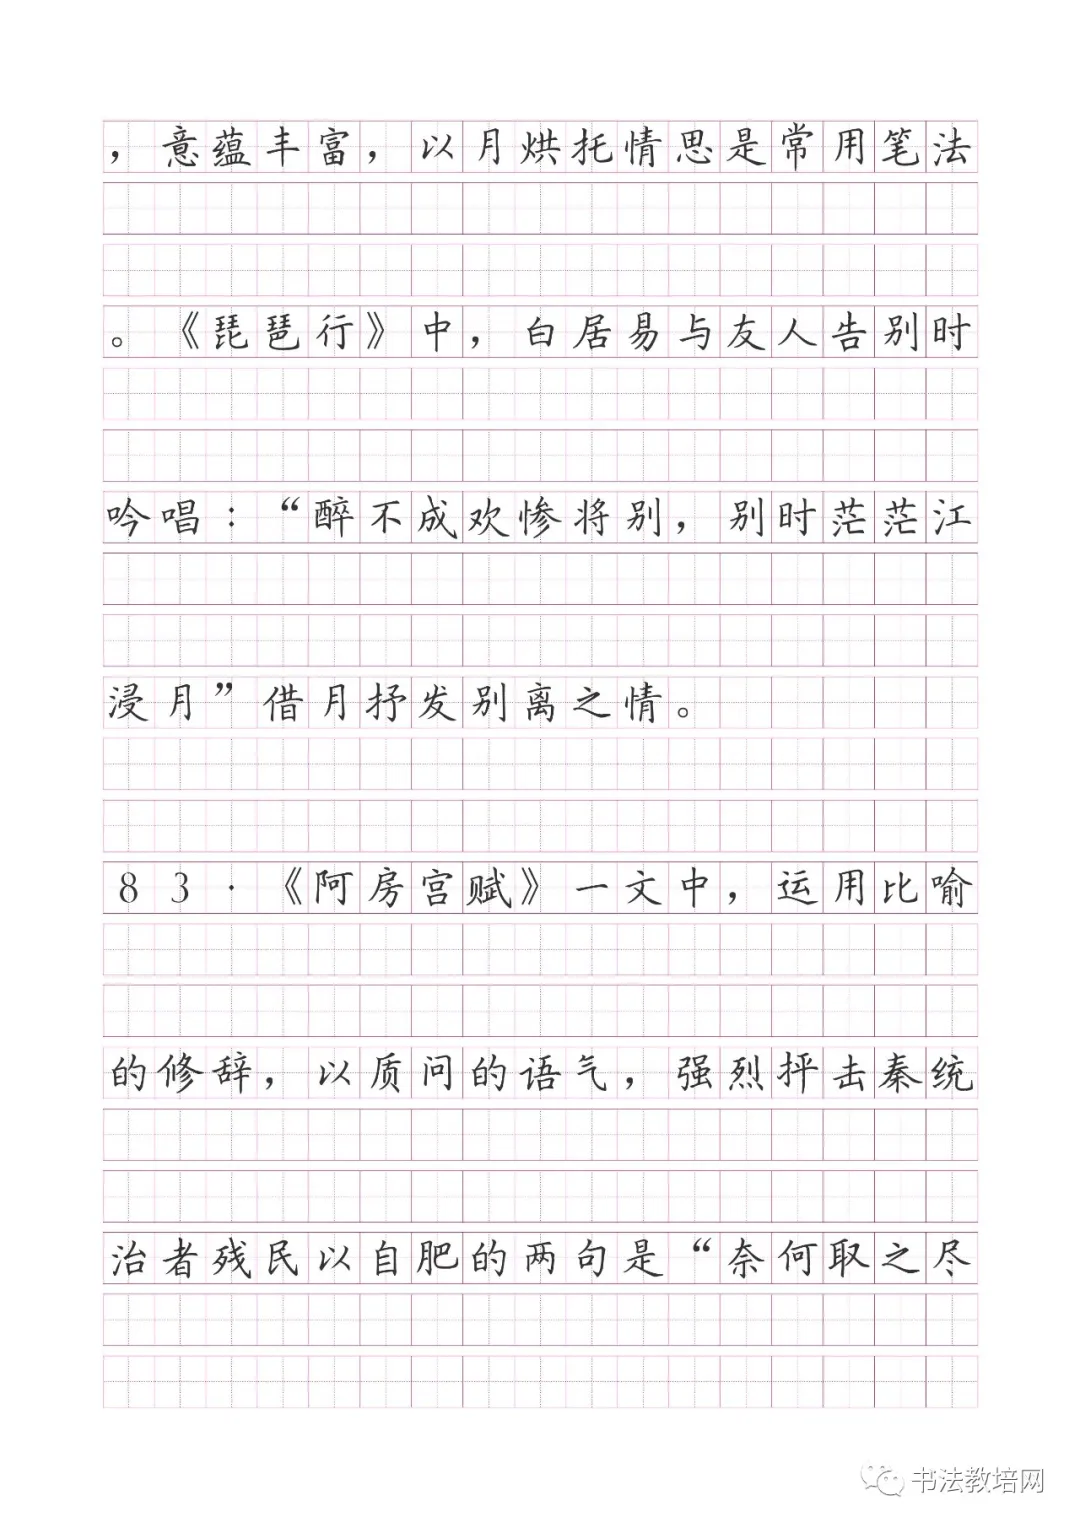 ，意蕴丰富，以月烘托情思是常用笔法
。《琵琶行》中，白居易与友人告别时
吟唱：“醉不成欢惨将别，别时茫茫江
浸月”借月抒发别离之情。
83.《阿房宫赋》一文中，运用比喻
的修辞，以质问的语气，强烈抨击秦统
治者残民以自肥的两句是“奈何取之尽
书法教培网